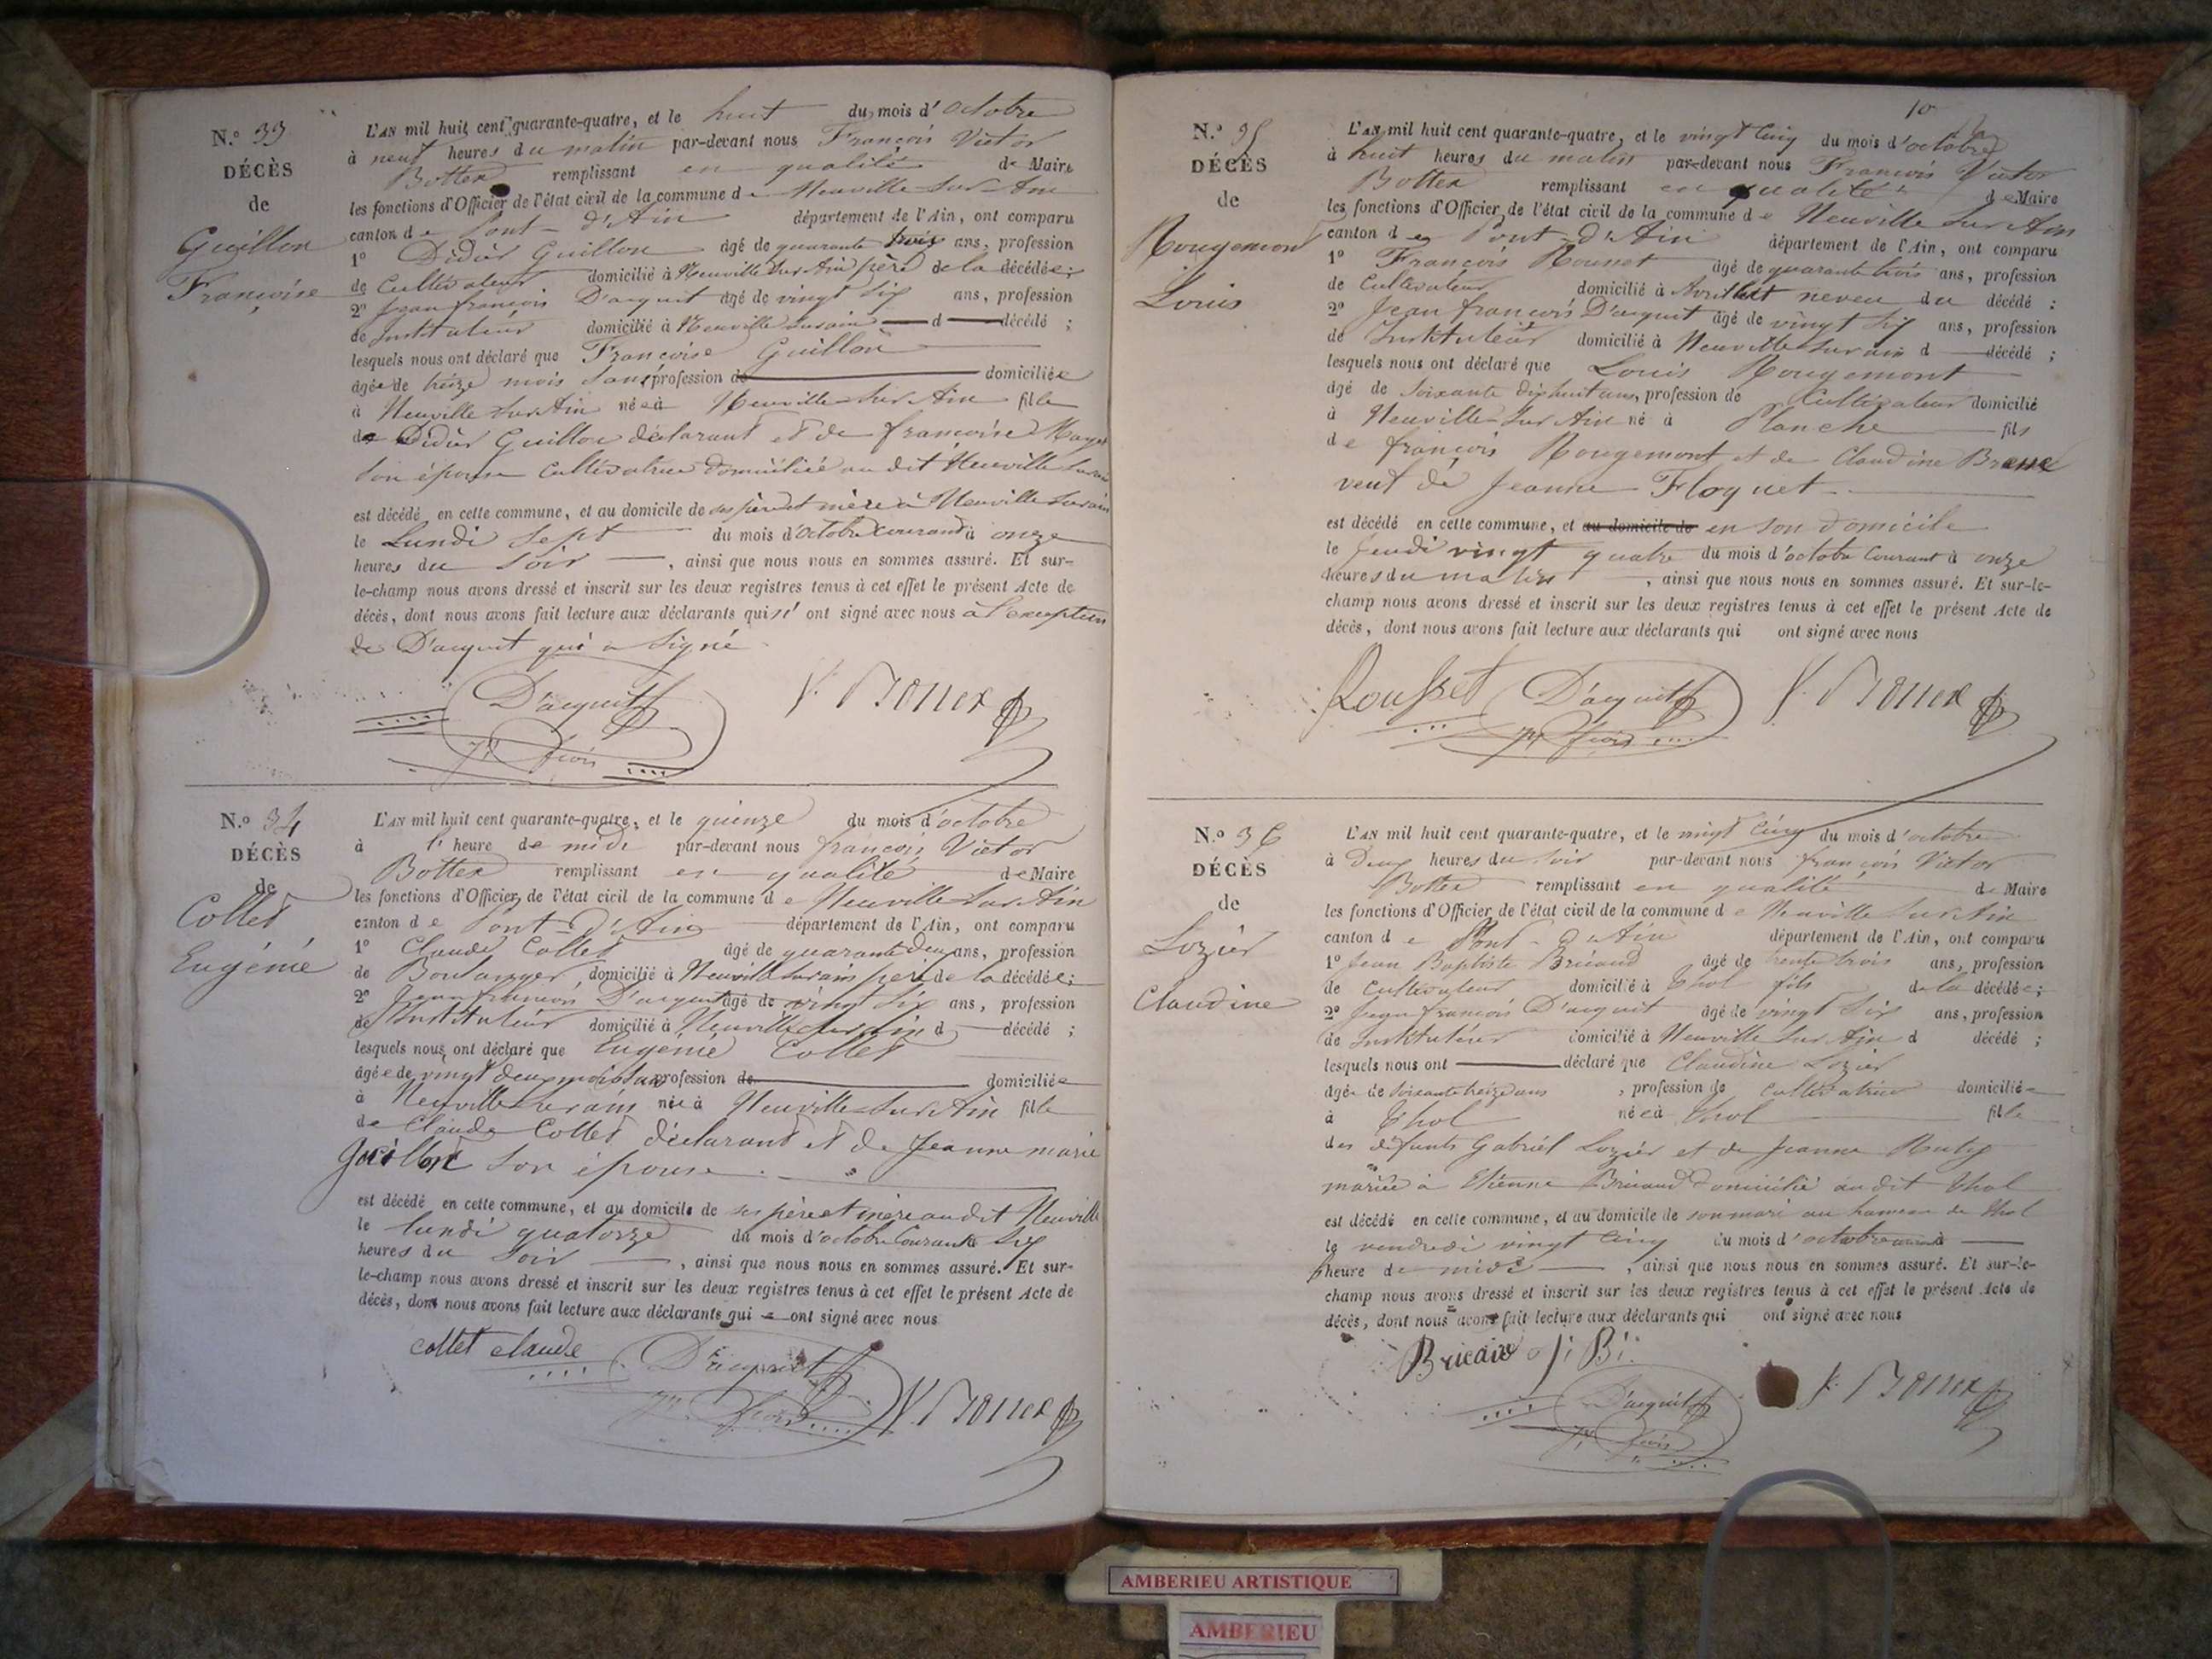 N.o 33
DÉCÈS
de
Guillon
Françoise
L'AN mil huit cent quarante-quatre, et le huit du mois d'octobre
à neuf heures du matin par-devant nous François Victor
Bottex remplissant en qualité de Maire
les fonctions d'Officier de l'état civil de la commune de Neuville sur Ain
canton de Pont-d'Ain département de l'Ain, ont comparu
1o Didier Guillon âgé de quarante trois ans, profession
de Cultivateur domicilié à Neuville sur Ain père de la décédée;
2o Jean françois D'acquit âgé de vingt six ans, profession
de Instituteur domicilié à Neuville sur ain d décédé ;
lesquels nous ont déclaré que Françoise Guillon
âgée de treize mois sans profession de domiciliée
à Neuville sur Ain née à Neuville sur Ain fille
de Didier Guillon déclarant et de françoise
son épouse Cultivatrice domiciliée au dit Neuville sur ain
est décédé en cette commune, et au domicile de ses père et mère à Neuville sur ain
le Lundi sept du mois d'octobre courant à onze
heures du soir , ainsi que nous nous en sommes assuré. Et sur-
le-champ nous avons dressé et inscrit sur les deux registres tenus à cet effet le présent Acte de
décès, dont nous avons fait lecture aux déclarants qui n' ont signé avec nous à l'exception
de D'acquit qui a signé
D'acquit
jn fçois
V. Bottex
N.o 34
DÉCÈS
de
Collet
Eugénie
L'AN mil huit cent quarante-quatre, et le quinze du mois d'octobre
à l' heure de midi par-devant nous françois Victor
Bottex remplissant en qualité de Maire
les fonctions d'Officier de l'état civil de la commune de Neuville sur Ain
canton de Pont-d'Ain département de l'Ain, ont comparu
1o Claude Collet âgé de quarante deux ans, profession
de Boulanger domicilié à Neuville sur ain père de la décédée;
2o Jean françois D'acquit âgé de vingt six ans, profession
de Instituteur domicilié à Neuville sur Ain d décédé ;
lesquels nous ont déclaré que Eugénie Collet
âgée de vingt deux mois sans profession de domiciliée
à Neuville sur ain née à Neuville sur Ain fille
de Claude Collet déclarant et de Jeanne marie
son épouse
est décédé en cette commune, et au domicile de ses père et mère au dit Neuville
le lundi quatorze du mois d'octobre courant à six
heures du soir , ainsi que nous nous en sommes assuré. Et sur-
le-champ nous avons dressé et inscrit sur les deux registres tenus à cet effet le présent Acte de
décès, dont nous avons fait lecture aux déclarants qui ont signé avec nous
collet claude
D'acquit
jn fçois
V. Bottex
10
N.o 35
DÉCÈS
de
Rougemont
Louis
L'AN mil huit cent quarante-quatre, et le vingt cinq du mois d'octobre
à huit heures du matin par-devant nous François Victor
Bottex remplissant en qualité de Maire
les fonctions d'Officier de l'état civil de la commune de Neuville sur Ain
canton de Pont-d'Ain département de l'Ain, ont comparu
1o François âgé de quarante trois ans, profession
de Cultivateur domicilié à neveu du décédé ;
2o Jean françois D'acquit âgé de vingt six ans, profession
de Instituteur domicilié à Neuville sur ain d décédé ;
lesquels nous ont déclaré que Louis Rougemont
âgé de soixante dix huit ans, profession de Cultivateur domicilié
à Neuville sur Ain né à Planche fils
de françois Rougemont et de Claudine
veuf de Jeanne Floquet
est décédé en cette commune, et au domicile de en son domicile
le Jeudi vingt quatre du mois d'octobre courant à onze
heures du matin , ainsi que nous nous en sommes assuré. Et sur-le-
champ nous avons dressé et inscrit sur les deux registres tenus à cet effet le présent Acte de
décès, dont nous avons fait lecture aux déclarants qui ont signé avec nous
Rousset
D'acquit
jn fçois
V. Bottex
N.o 36
DÉCÈS
de
Lozier
Claudine
L'AN mil huit cent quarante-quatre, et le vingt cinq du mois d'octobre
à deux heures du soir par-devant nous françois Victor
Bottex remplissant en qualité de Maire
les fonctions d'Officier de l'état civil de la commune de Neuville sur Ain
canton de Pont-d'Ain département de l'Ain, ont comparu
1o Jean Baptiste Bricaud âgé de trente trois ans, profession
de Cultivateur domicilié à Thol fils de la décédée;
2o Jean françois D'acquit âgé de vingt six ans, profession
de Instituteur domicilié à Neuville sur Ain d décédé ;
lesquels nous ont déclaré que Claudine Lozier
âgée de soixante treize ans , profession de cultivatrice domiciliée
à Thol née à Thol fille
des défunts Gabriel Lozier et de Jeanne
mariée à Etienne Bricaud domicilié au dit Thol
est décédé en cette commune, et au domicile de son mari au hameau de Thol
le vendredi vingt cinq du mois d'octobre courant à
heure de midi , ainsi que nous nous en sommes assuré. Et sur-le-
champ nous avons dressé et inscrit sur les deux registres tenus à cet effet le présent Acte de
décès, dont nous avons fait lecture aux déclarants qui ont signé avec nous
D'acquit
jn fçois
V. Bottex
AMBERIEU ARTISTIQUE
AMBERIEU